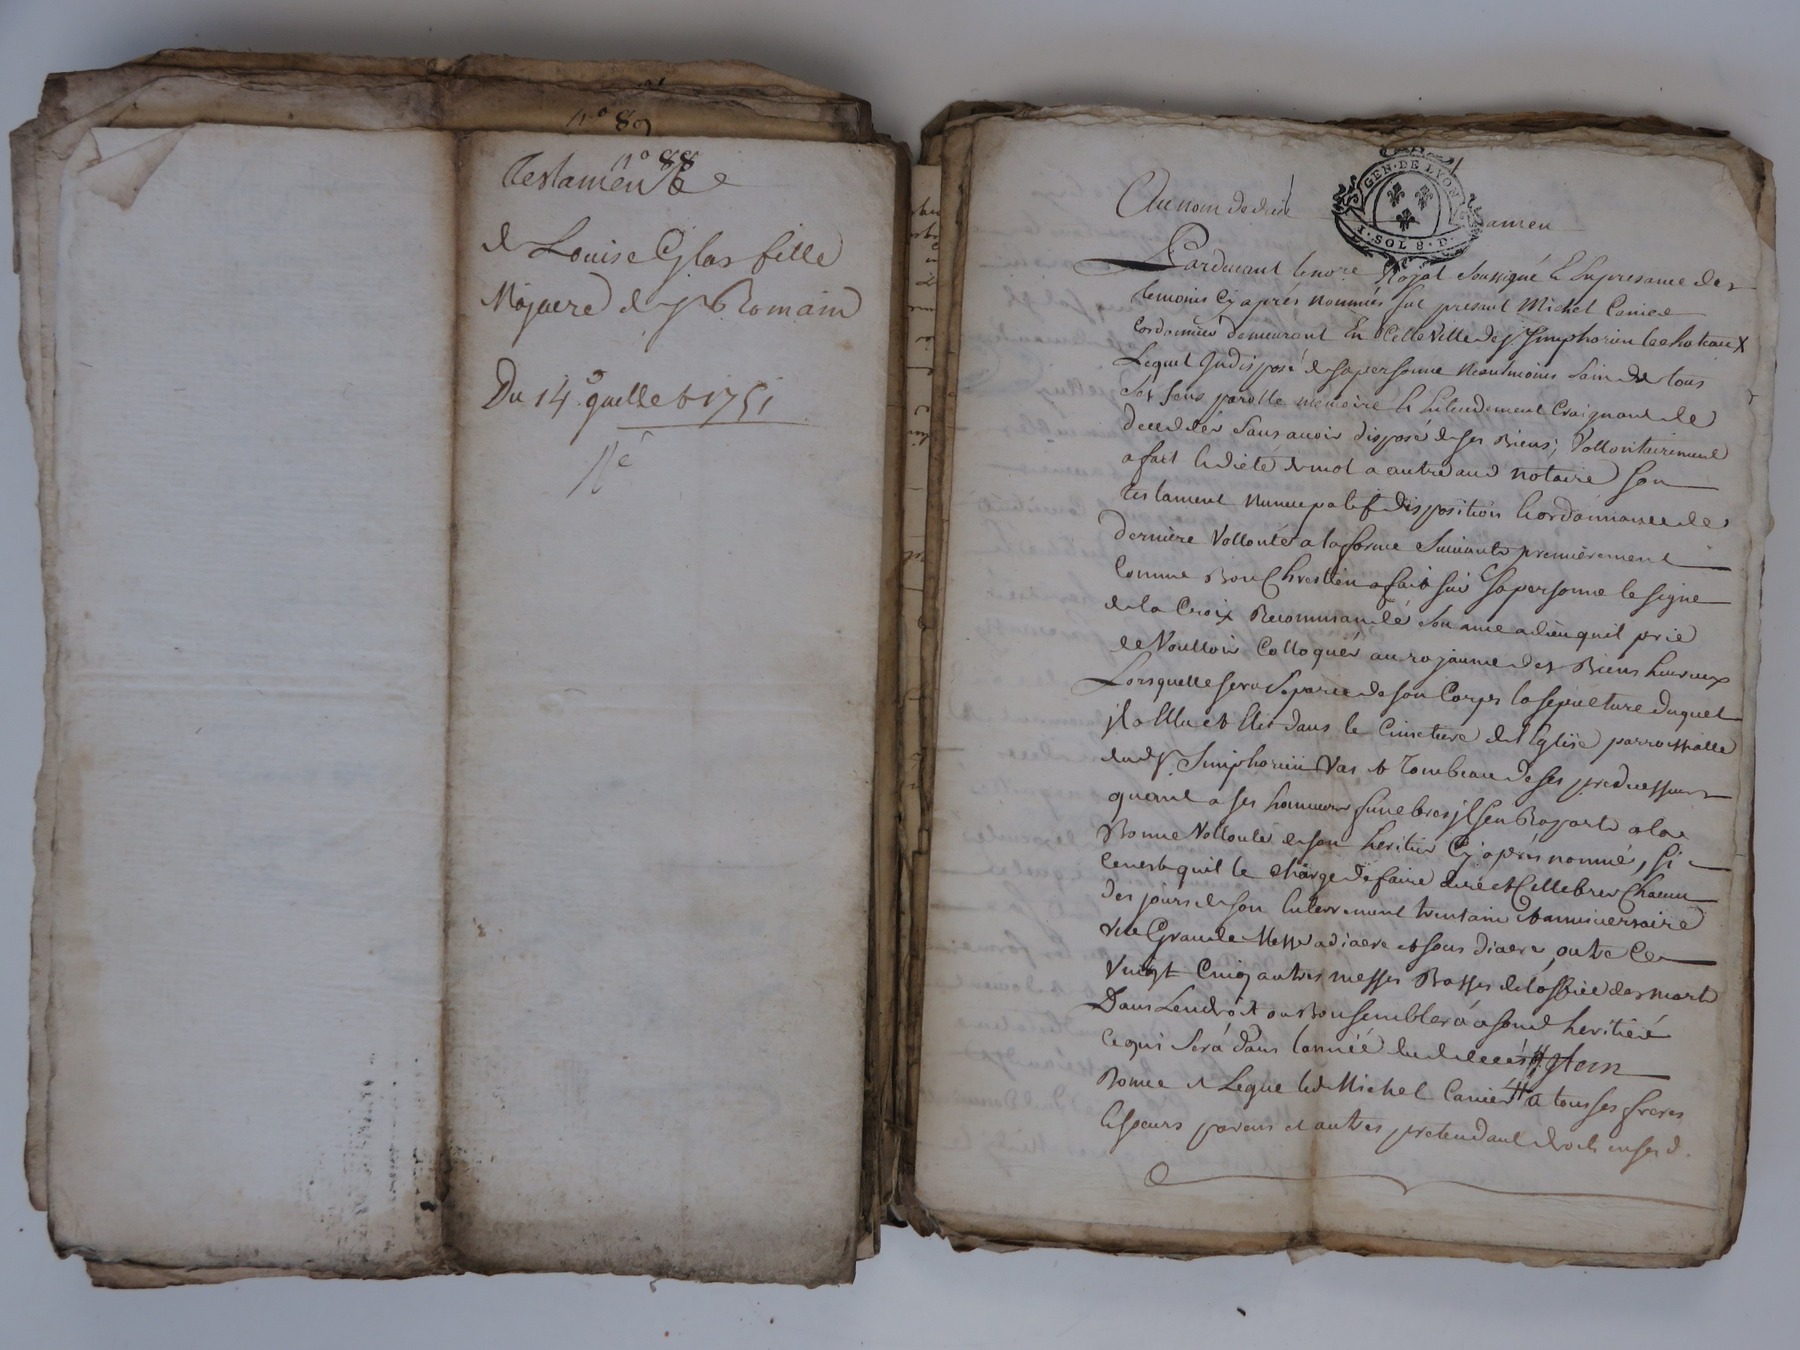 n° 89
n° 88
Testament
de Louise Glas fille
Majeure de St Romain
Du 14e juillet 1751
GEN. DE LYON
1. SOL 8. D.
Au nom de dieu amen
Pardevant le no.re Royal soussigné & en presance des
temoins cy aprés nommés fut present Michel Canier
Cordonnier demeurant En cette ville de St Simphorien le chateau X
Lequel Indisposé de sa personne neantmoins sain de tous
ses sens parolle memoire & Entendement Craignant de
decedder sans avoir disposé de ses Biens; Vollontairement
a fait & dicté de mot a autre aud notaire son
testament nuncupatif disposition & ordonnance de
derniére Vollonté a la forme suivante premiérement
Comme Bon Chrestien a fait sur sa personne le signe
de la Croix Recommandé son ame a dieu quil prie
de Voulloir Colloquer au rojaume des Biens heureux
Lorsquelle sera separée de son Corps la sepulture duquel
jl a Elu et Elit dans le Cimetiere de l'Eglise parroissialle
dud St Simphorien Vas et Tombeau de ses predecesseurs
quant a ses honneurs funebres jl sen Raporte a la
Bonne Vollonté de son heritier Cy aprés nommé, si
ce nest quil le charge de faire dire et Cellebrer Chacun
des jours de son Enterrement trentain et anniversaire
une Grande Messe a diacre et sous diacre, outre Ce
Vingt Cinq autres messes Basses de l'office des morts
Dans Lendroit ou Bon semblera a sond heritiér
Ce qui será dans lannéé du decés # Item
Donne et Legue led Michel Canier # a tous ses freres
& soeurs parens et autres pretendant droits en sesd.